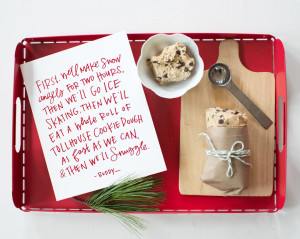 FIRST we'll MAKE SNOW
angels FOR TWO HOURS,
THEN WE'LL GO ICE
SKATING, THEN WE'LL
EAT A whole ROLL OF
TOLLHOUSE COOKIE DOUGH
AS fast AS WE CAN,
& THEN WE'LL Snuggle.
- BUDDY